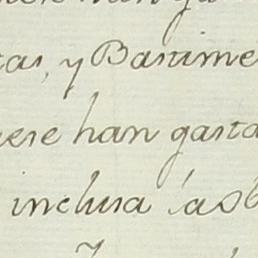 tas, y Bastime
ese han gasta
inclusa 'asb